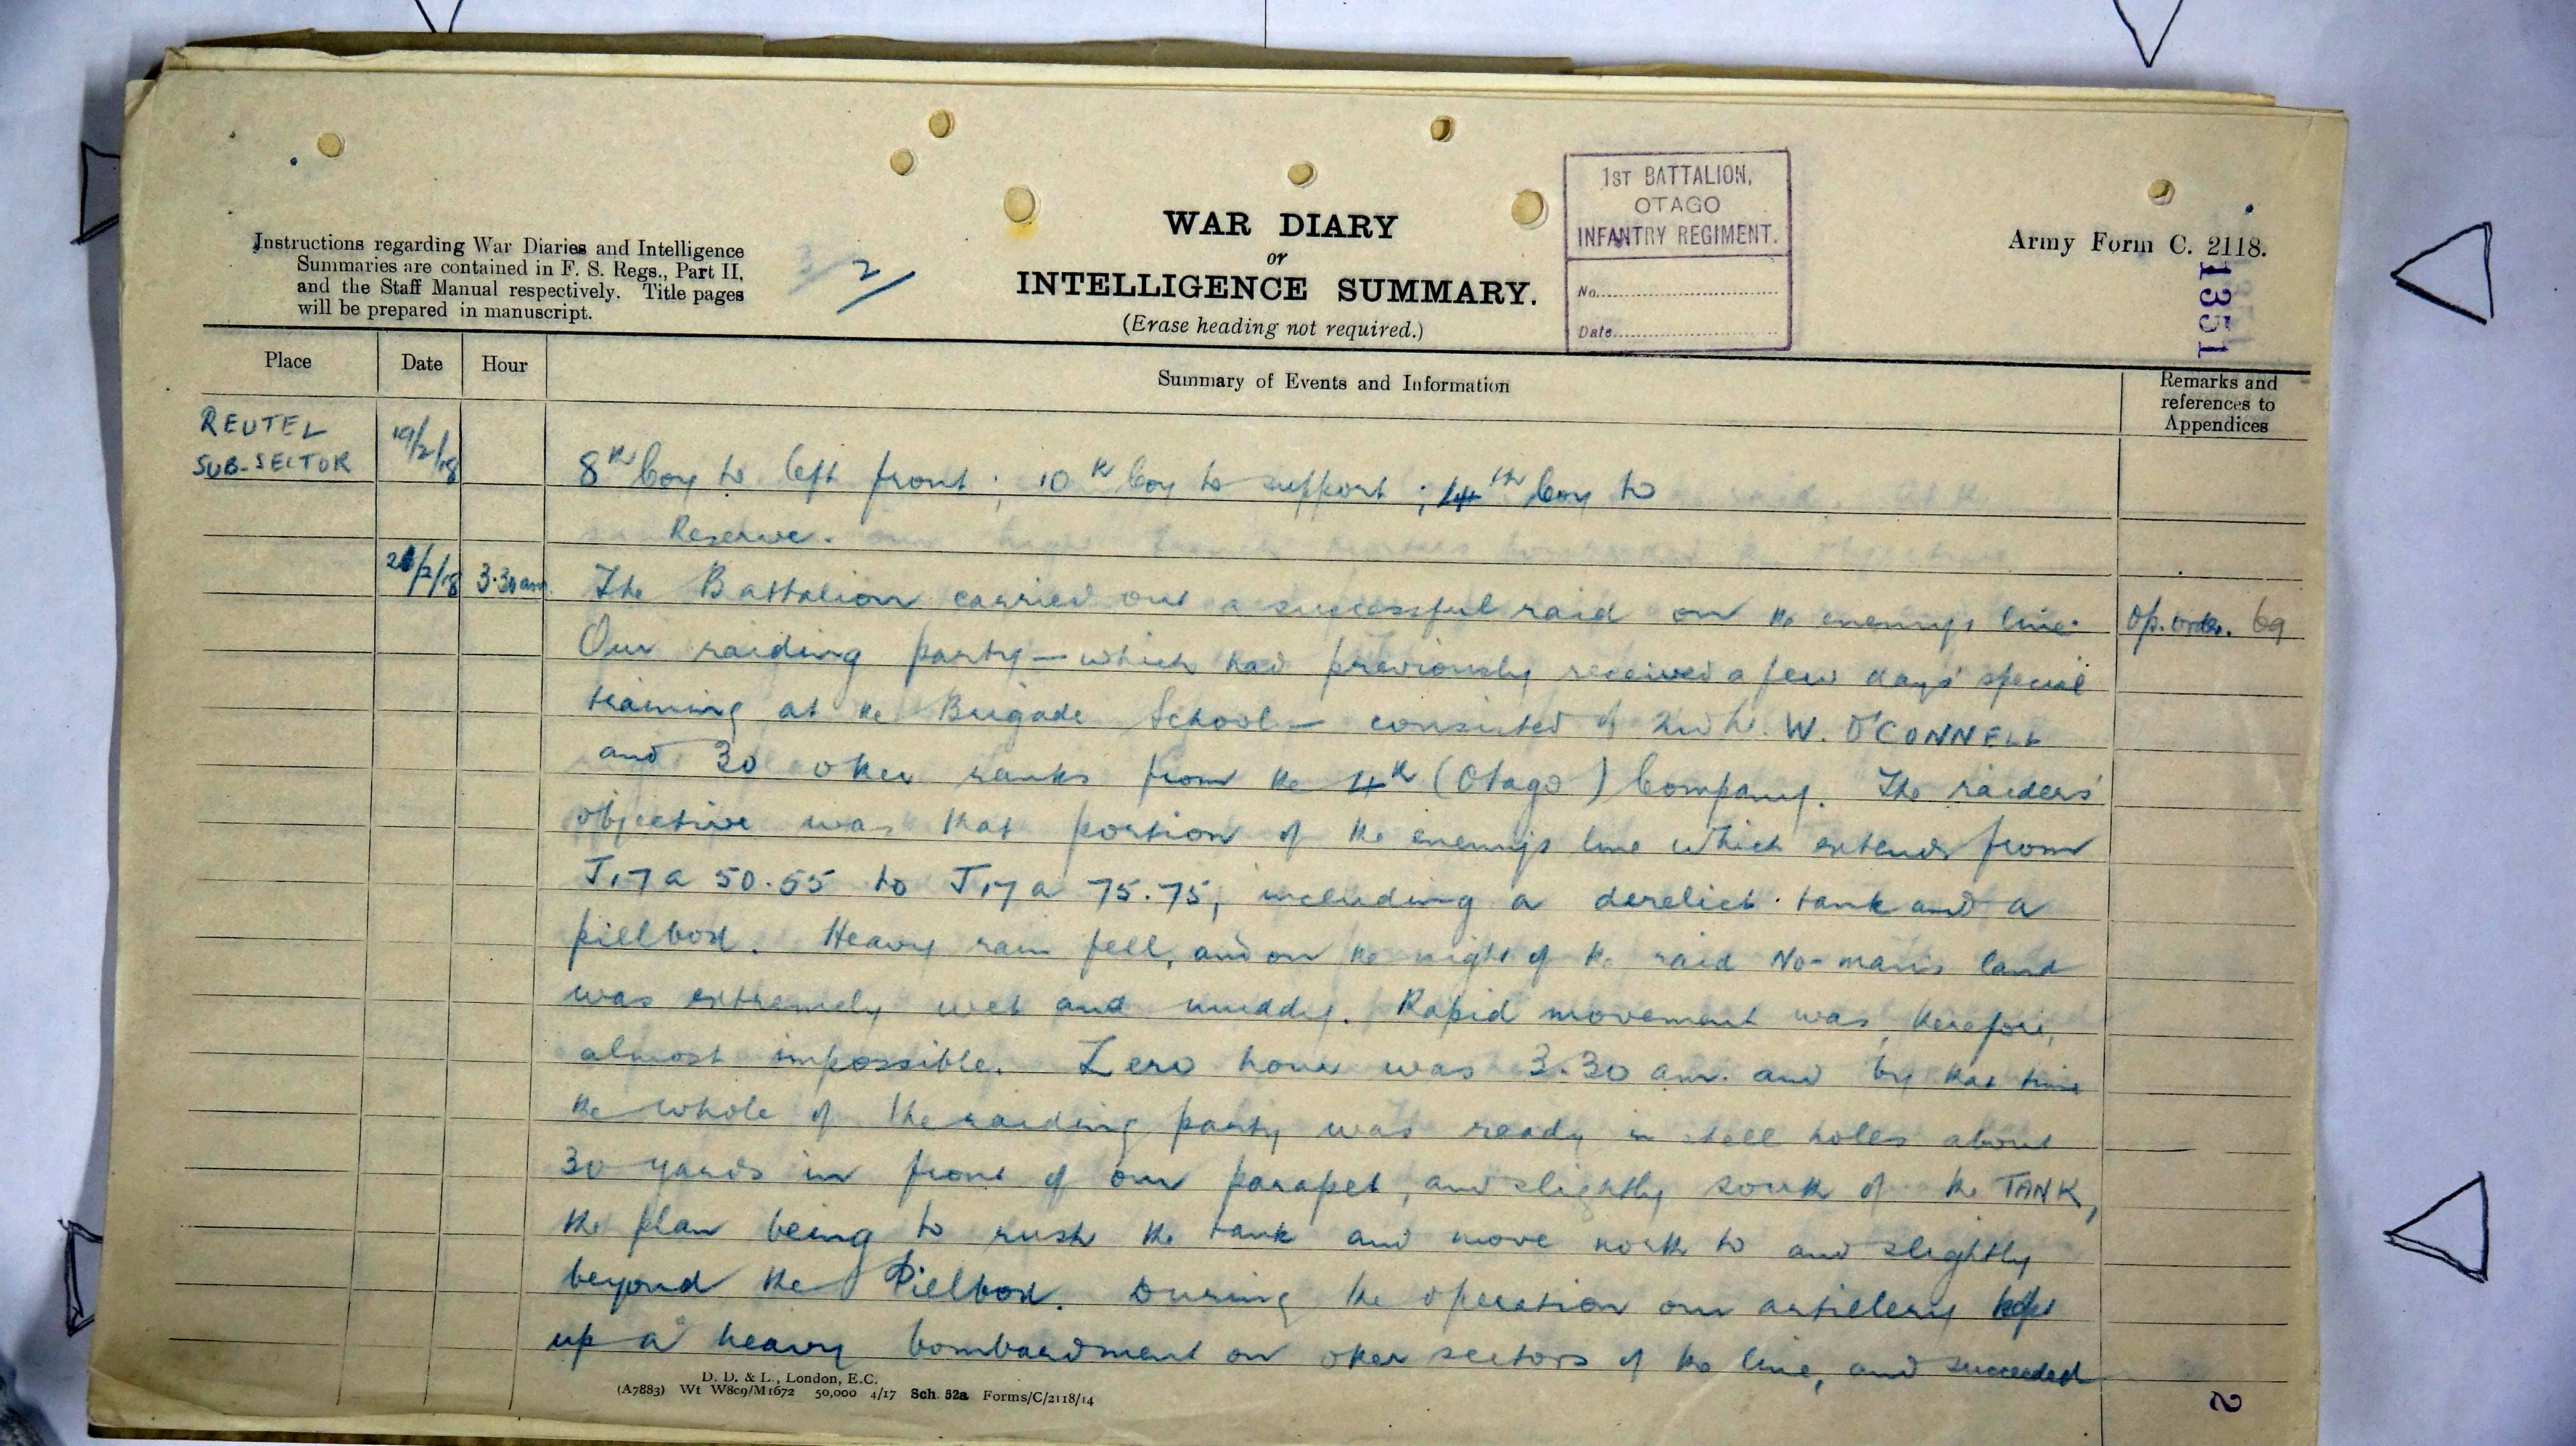 1ST BATTALION,
OTAGO
INFANTRY REGIMENT.
No.
Date
Instructions regarding War Diaries and Intelligence
Summaries are contained in F. S. Regs., Part II,
and the Staff Manual respectively. Title pages
will be prepared in manuscript.
2/
WAR DIARY
or
INTELLIGENCE SUMMARY.
(Erase heading not required.)
Army Form C. 2118.
1351
Place Date Hour Summary of Events and Information Remarks and
references to
Appendices
REUTEL
SUB-SECTOR
19/2/18
8th Coy to left front; 10th Coy to support; 14th Coy to
Reserve.
/2/18 3.30 am. The Battalion carried out a successful raid on the enemy's line. Op. order. 69
Our raiding party — which had previously received a few days' special
training at the Brigade School — consisted of 2nd Lt. W. O'CONNELL
and 30 other ranks from the 4th (Otago) Company. The raiders'
objective was that portion of the enemy's line which extends from
J.17 a 50.55 to J.17 a 75.75, including a derelict tank and a
pillbox. Heavy rain fell, and on the night of the raid No-man's land
was extremely wet and muddy. Rapid movement was, therefore,
almost impossible. Zero hour was 3.30 am. and by that time
the whole of the raiding party was ready in shell holes about
30 yards in front of our parapet, and slightly south of the TANK,
the plan being to rush the tank and move north to and slightly
beyond the Pillbox. During the operation our artillery kept
up a heavy bombardment on other sectors of the line, and succeeded
D. D. & L., London, E.C.
(A7883) Wt W809/M1672 50,000 4/17 Sch. 52a Forms/C/2118/14
2